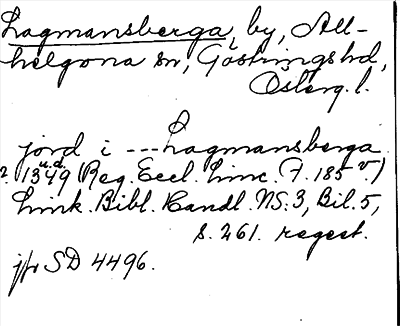 Lagmansberga, by, All-
helgona sn, Göstringshd,
Österg. l.
jord i --- Lagmansberga
u.d.
? 1349 (Reg. Eccl. Linc. F. 185 v.)
Link. Bibl. Handl. NS. 3, Bil. 5,
s. 261. regest.
jfr SD 4496.